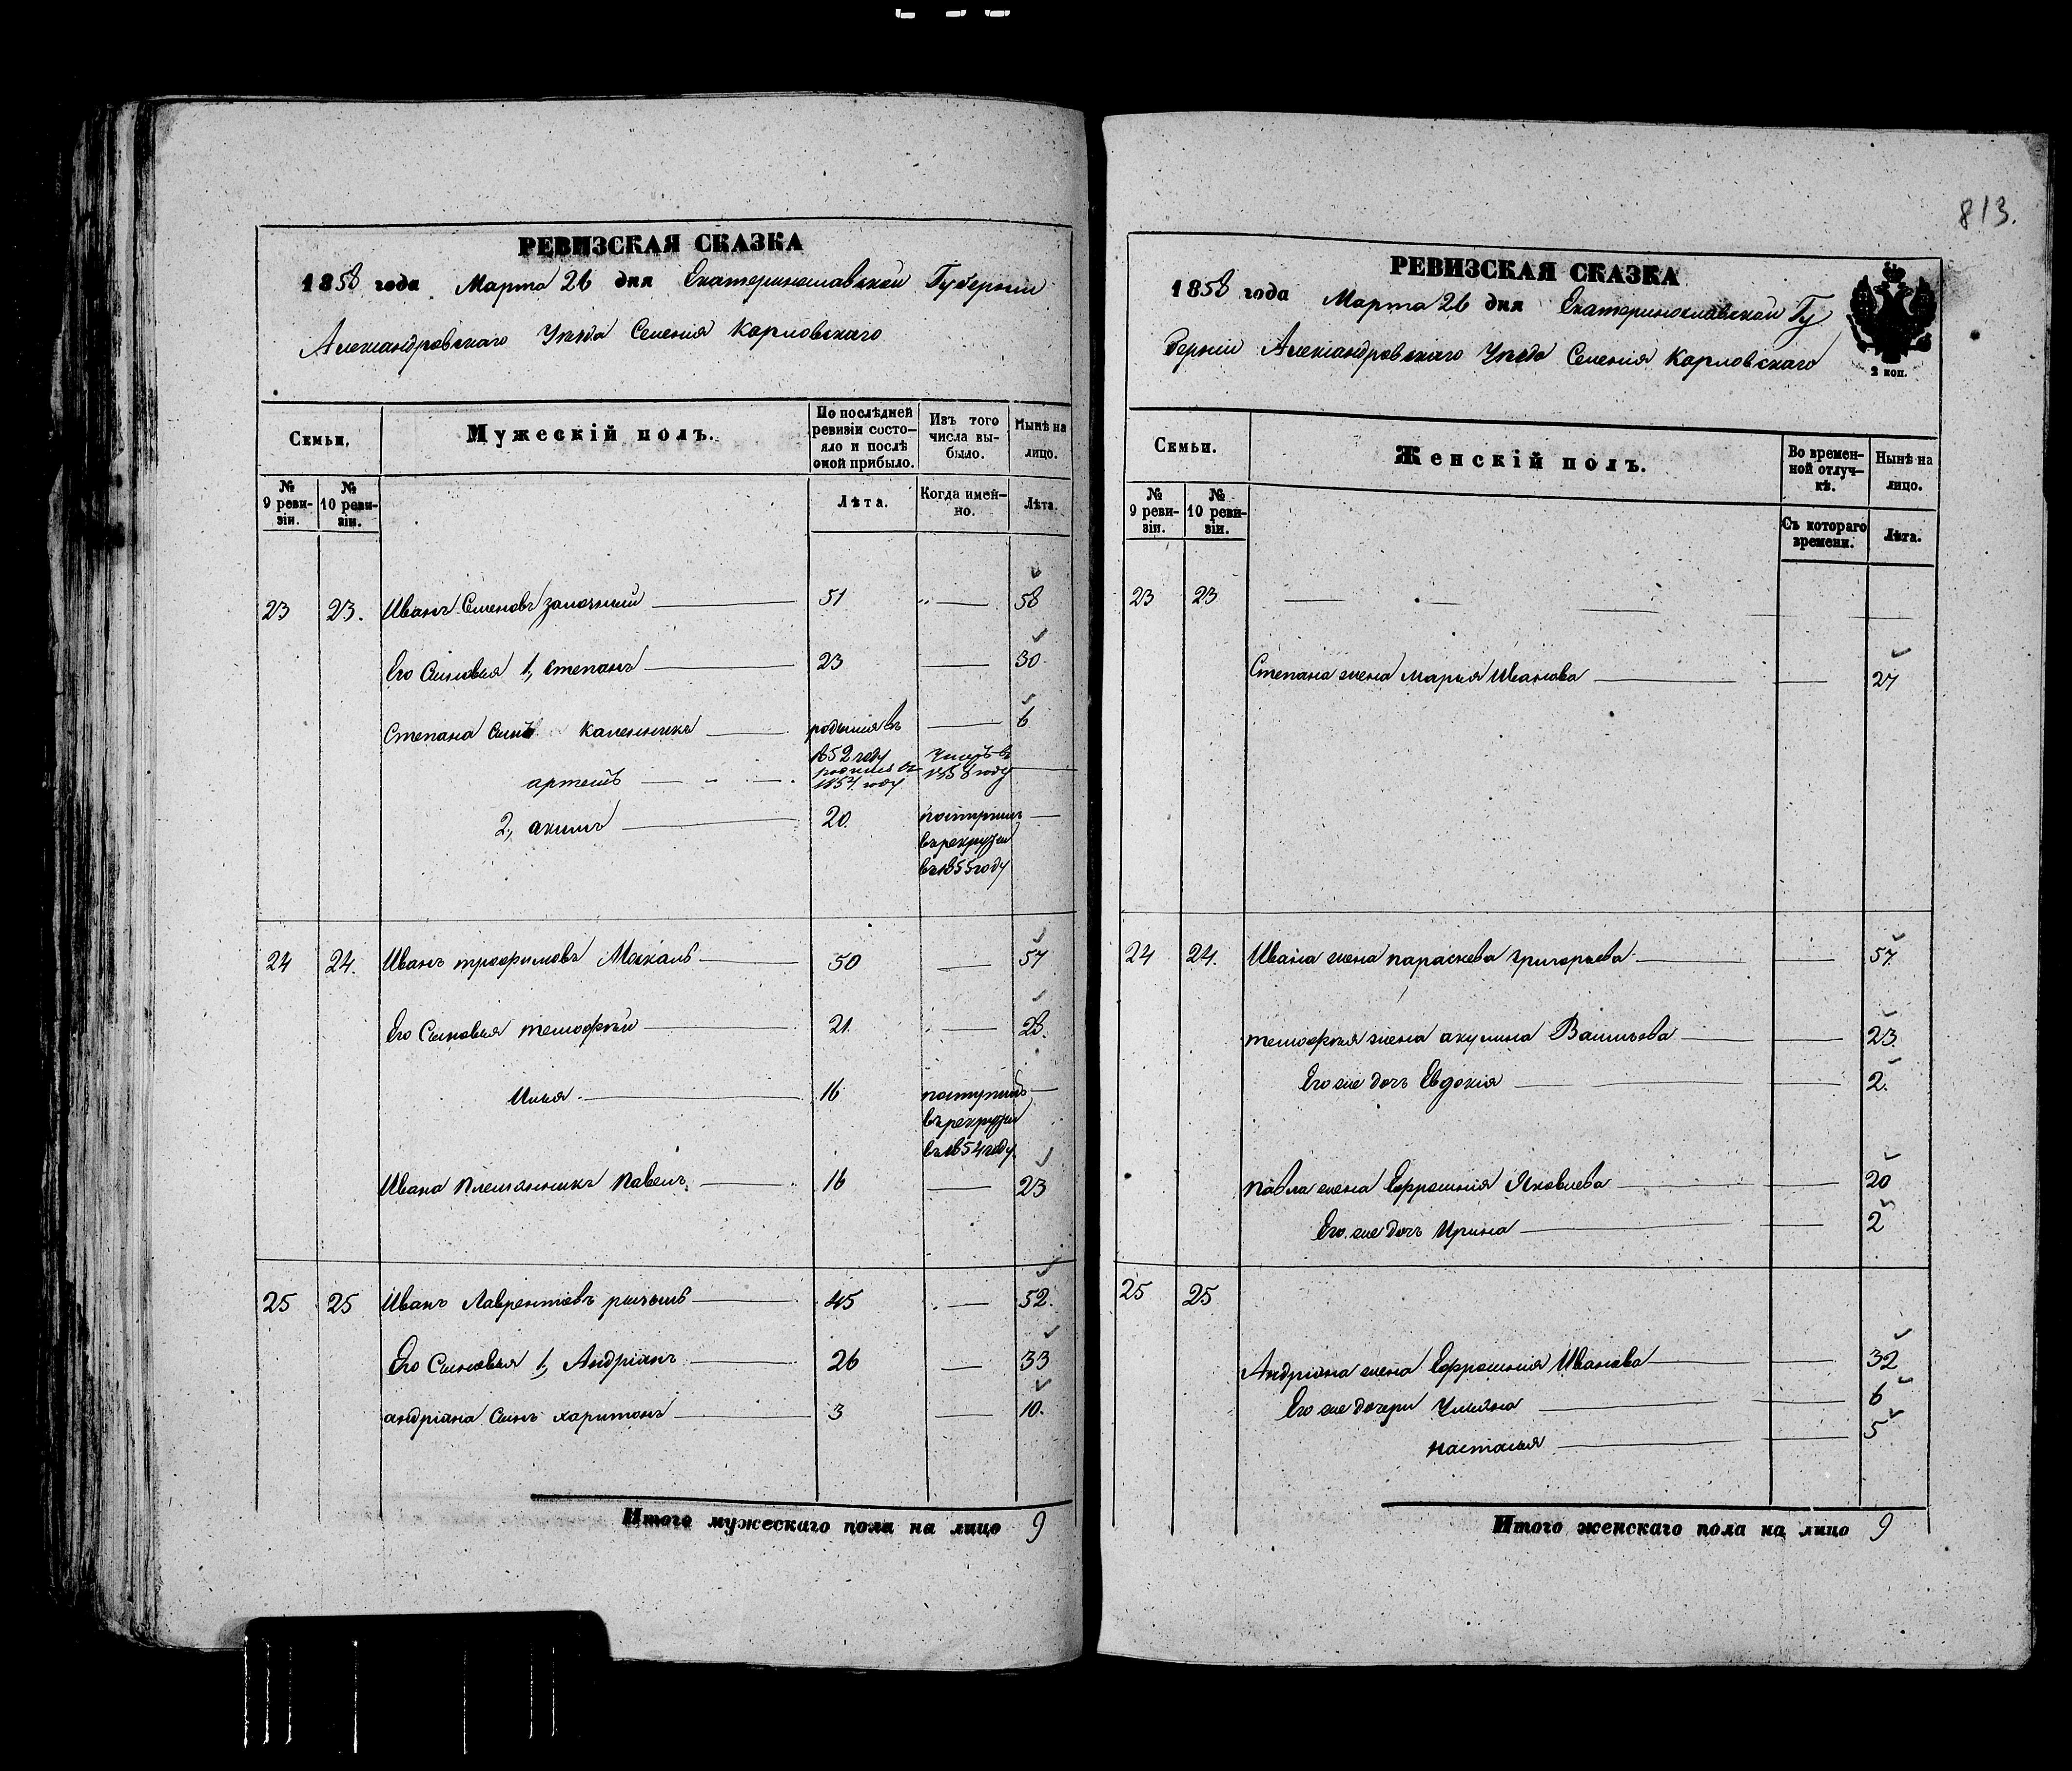 813.
РЕВИЗСКАЯ СКАЗКА
1858 года Марта 26 дня Екатеринославской Губернии
Александровскаго Уѣзда Селенія Карловскаго
Семьи.
Мужескій полъ.
По послѣдней ревизіи состо-
яло и послѣ
оной прибыло.
Изъ того
числа вы-
было.
Нынѣ на
лицо.
№ 9 реви-
зіи.
№ 10 реви-
зіи.
Лѣта.
Когда имен-
но.
Лѣта.
23 23. Иванъ Семеновъ 51 58
Его Сыновья 1, степанъ 23 30
Степана Сынъ каленникъ родился въ 6
1852 году
артемъ родился въ 1857 году Умеръ въ 1858 году
2, акимъ 20. поступилъ
въ рекруты
въ 1855 году
24 24. Иванъ трофимовъ Москаль 50 57
Его Сыновья тимофѣй 21. 28.
Илья 16 поступилъ
въ рекруты
въ 1854 году
Ивана племянникъ павелъ 16 23
25 25 Иванъ Лаврентьевъ 45 52.
Его Сыновья 1, Андріанъ 26 33
андріана Сынъ харитонъ 3 10.
Итого мужескаго пола на лицо 9
РЕВИЗСКАЯ СКАЗКА
1858 года Марта 26 дня Екатеринославской Гу
берніи Александровскаго Уѣзда Селенія Карловскаго
2 коп.
Семьи.
Женскій полъ.
Во времен-
ной отлуч-
кѣ.
Нынѣ на
лицо.
№ 9 реви-
зіи.
№ 10 реви-
зіи.
Съ котораго
времени.
Лѣта.
23 23
Степана жена марья Иванова 27
24 24. Ивана жена параскева григорьева 57.
тимофѣя жена акулина Васильева 23.
Его же дочь Евдокія 2.
павла жена Ефросинія Яковлева 20
Его же дочь Ирина 2
25 25
Андріана жена Ефросинія Иванова 32
Его же дочери Ульяна 6
наталья 5
Итого женскаго пола на лицо 9